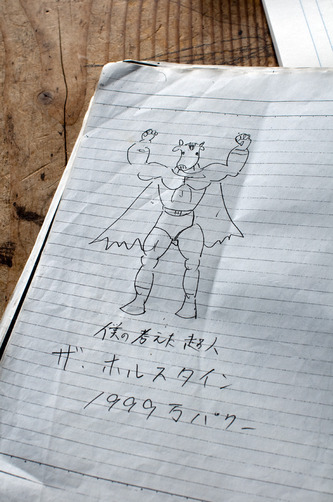 僕の考えた超人
ザ・ホルスタイン
1999万パワー